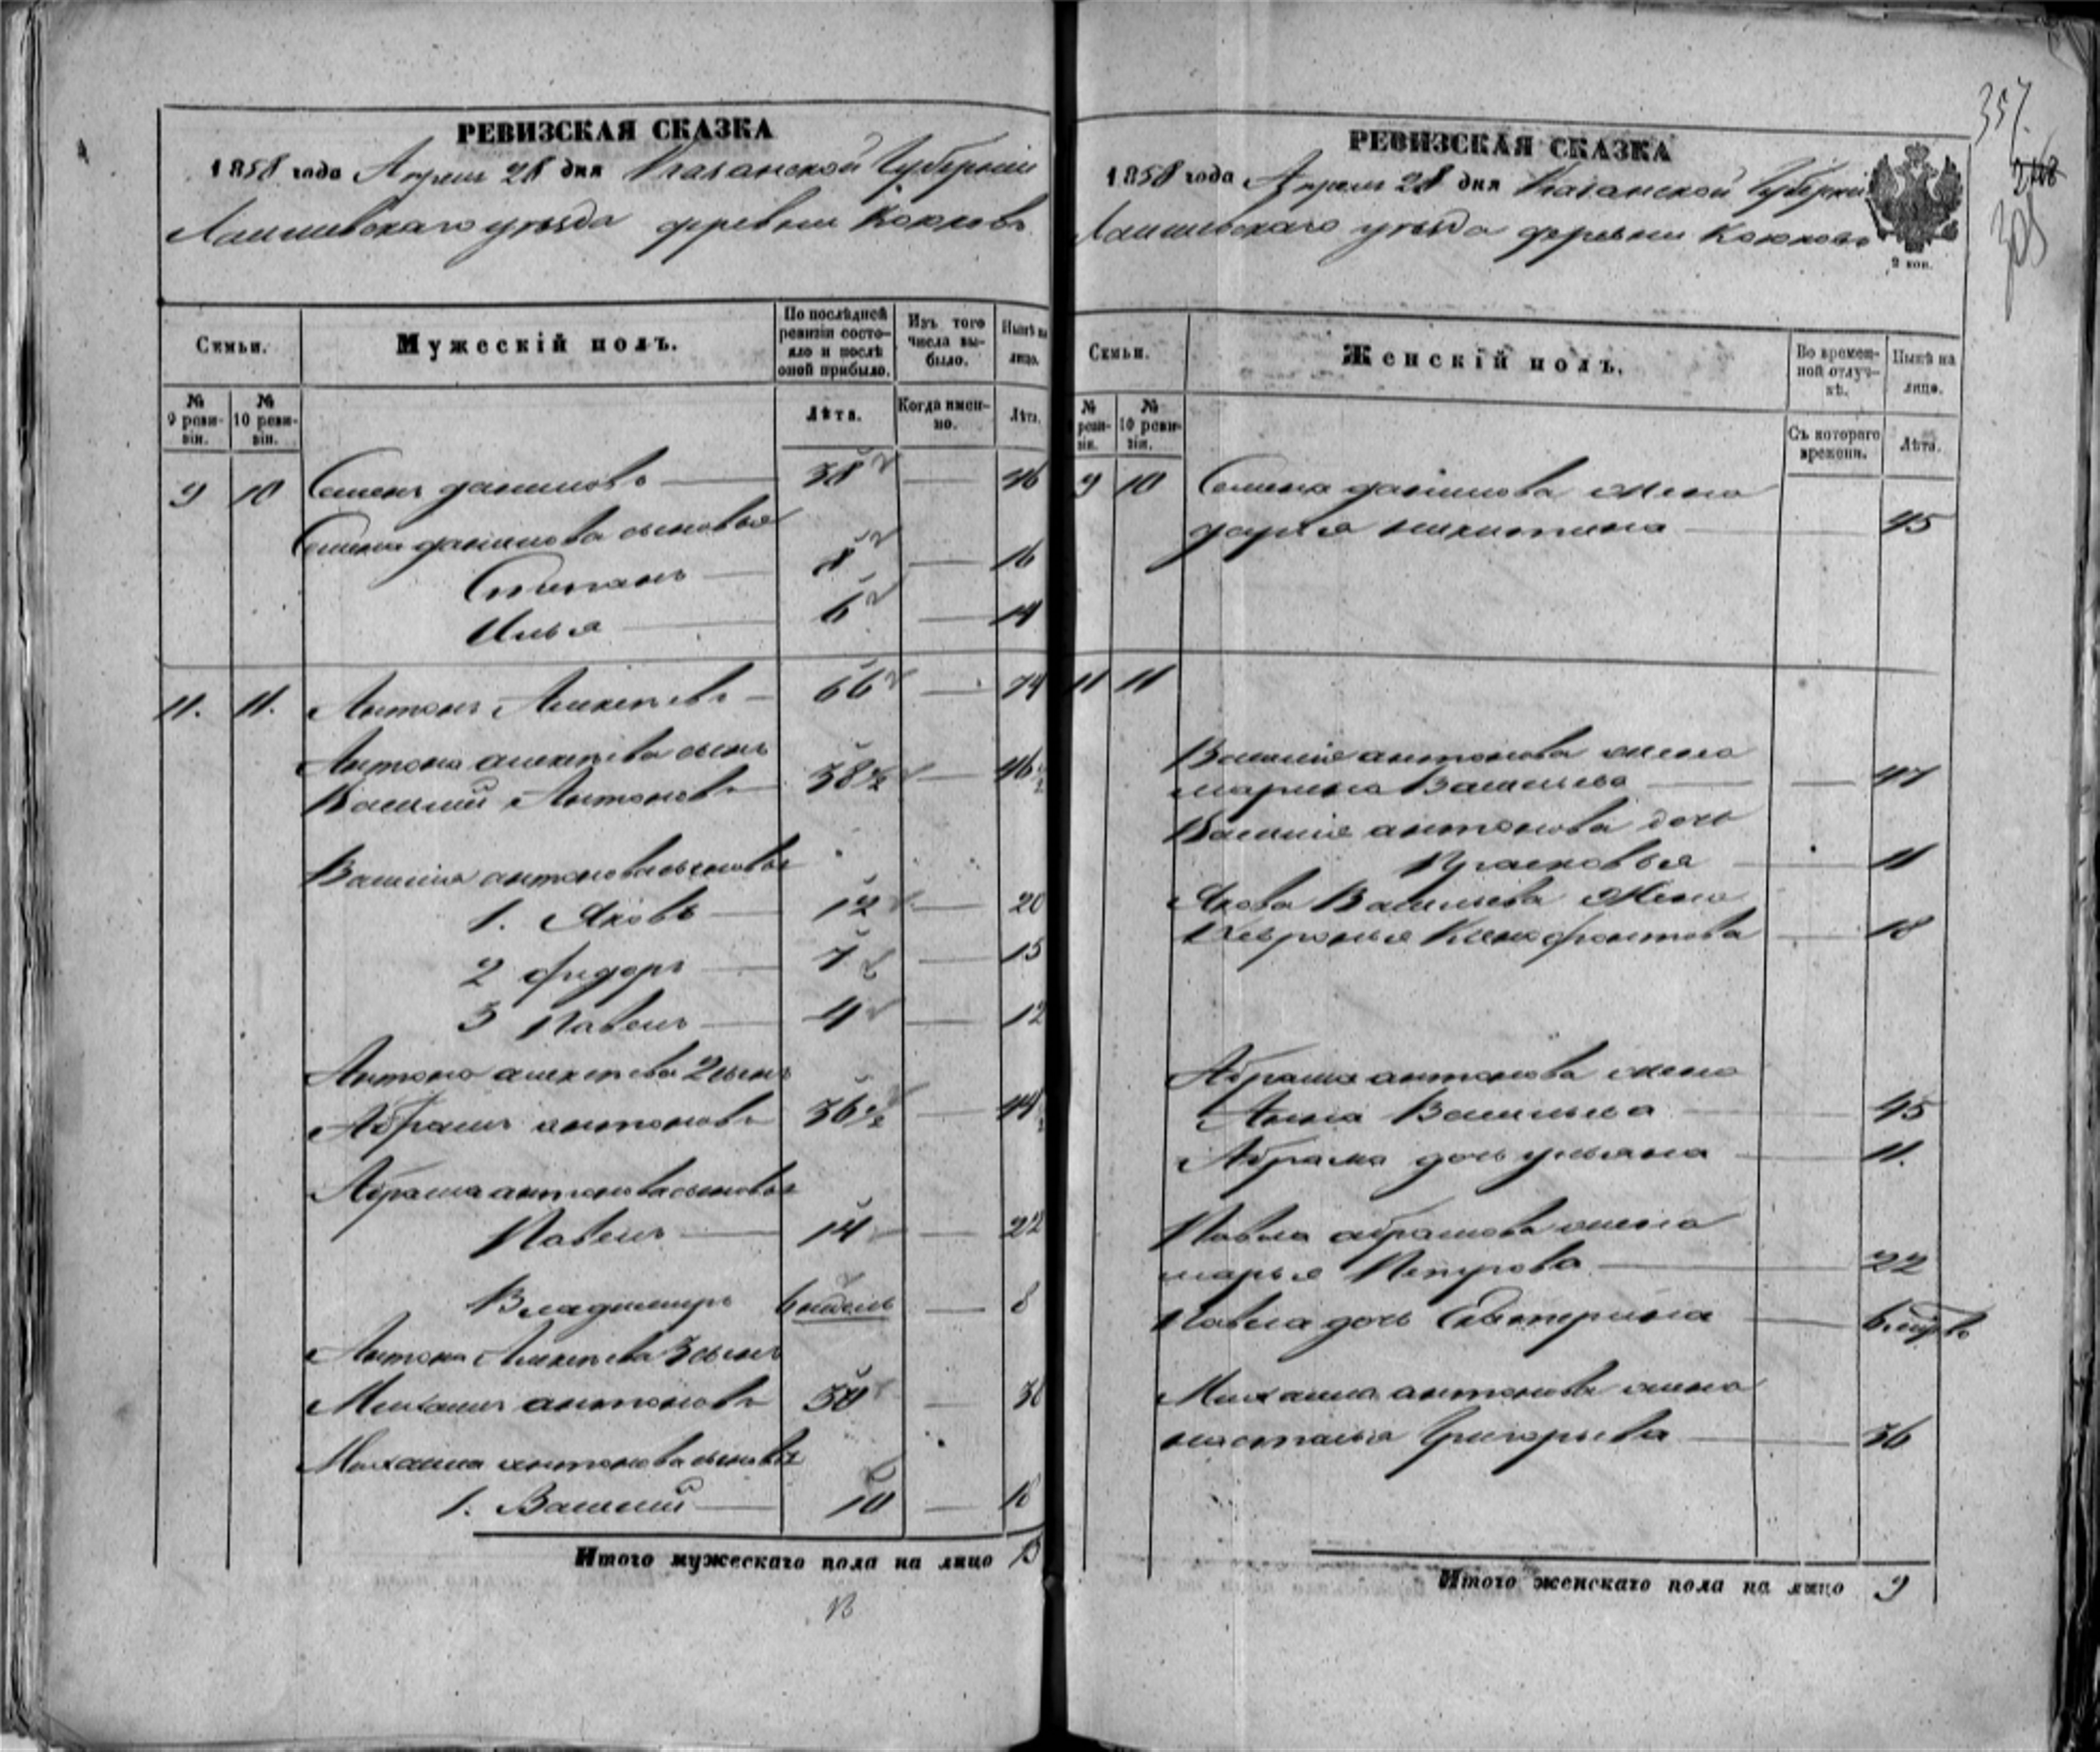 РЕВИЗСКАЯ СКАЗКА
1858 года Апреля 28 дня Казанской Губернии
Лаишевскаго уѣзда деревни Коково
Семьи.
Мужескій полъ.
По послѣдней ревизіи состояло и послѣ оной прибыло.
Изъ того числа выбыло.
Нынѣ на лицо.
№ 9 ревизіи.
№ 10 ревизіи.
Лѣта.
Когда именно.
Лѣта.
9 10 Семенъ даниловъ 38 46
Семена данилова сыновья
Степанъ 8 16
Илья 6 14
11. 11. Антонъ Алексѣевъ 66 74
Антона алексѣева сынъ
Василий Антоновъ 38½ 46½
Василия антонова сыновья
1. Яковъ 12 20
2 Федоръ 7 15
3 Павелъ 4 12
Антона алексѣева 2 сынъ
Абрамъ антоновъ 36½ 44½
Абрама антонова сыновья
Павелъ 14 22
Владимиръ 6 недель 8
Антона Алексѣева 3 сынъ
Михаилъ антоновъ 30 38
Михаила антонова сыновья
1. Василий 10 18
Итого мужескаго пола на лицо 13
13
РЕВИЗСКАЯ СКАЗКА
1858 года Апреля 28 дня Казанской Губернии
Лаишевскаго уѣзда деревни Коково
2 коп.
357.
Семьи.
Женскій полъ.
Во временной отлучкѣ.
Нынѣ на лицо.
№ ревизіи.
№ 10 ревизіи.
Съ котораго времени.
Лѣта.
9 10 Семена данилова жена
дарья никитина 45
11 11
Василия антонова жена
марина Васильева 47
Василия антонова дочь
Прасковья 11
Якова Васильева Жена
Февронья Ксенофонтова 18
Абрама антонова жена
Анна Васильева 45
Абрама дочь ульяна 11.
Павла абрамова жена
марья Петрова 22
Павла дочь Екатерина
Михаила антонова жена
настасья Григорьева 36
Итого женскаго пола на лицо 9